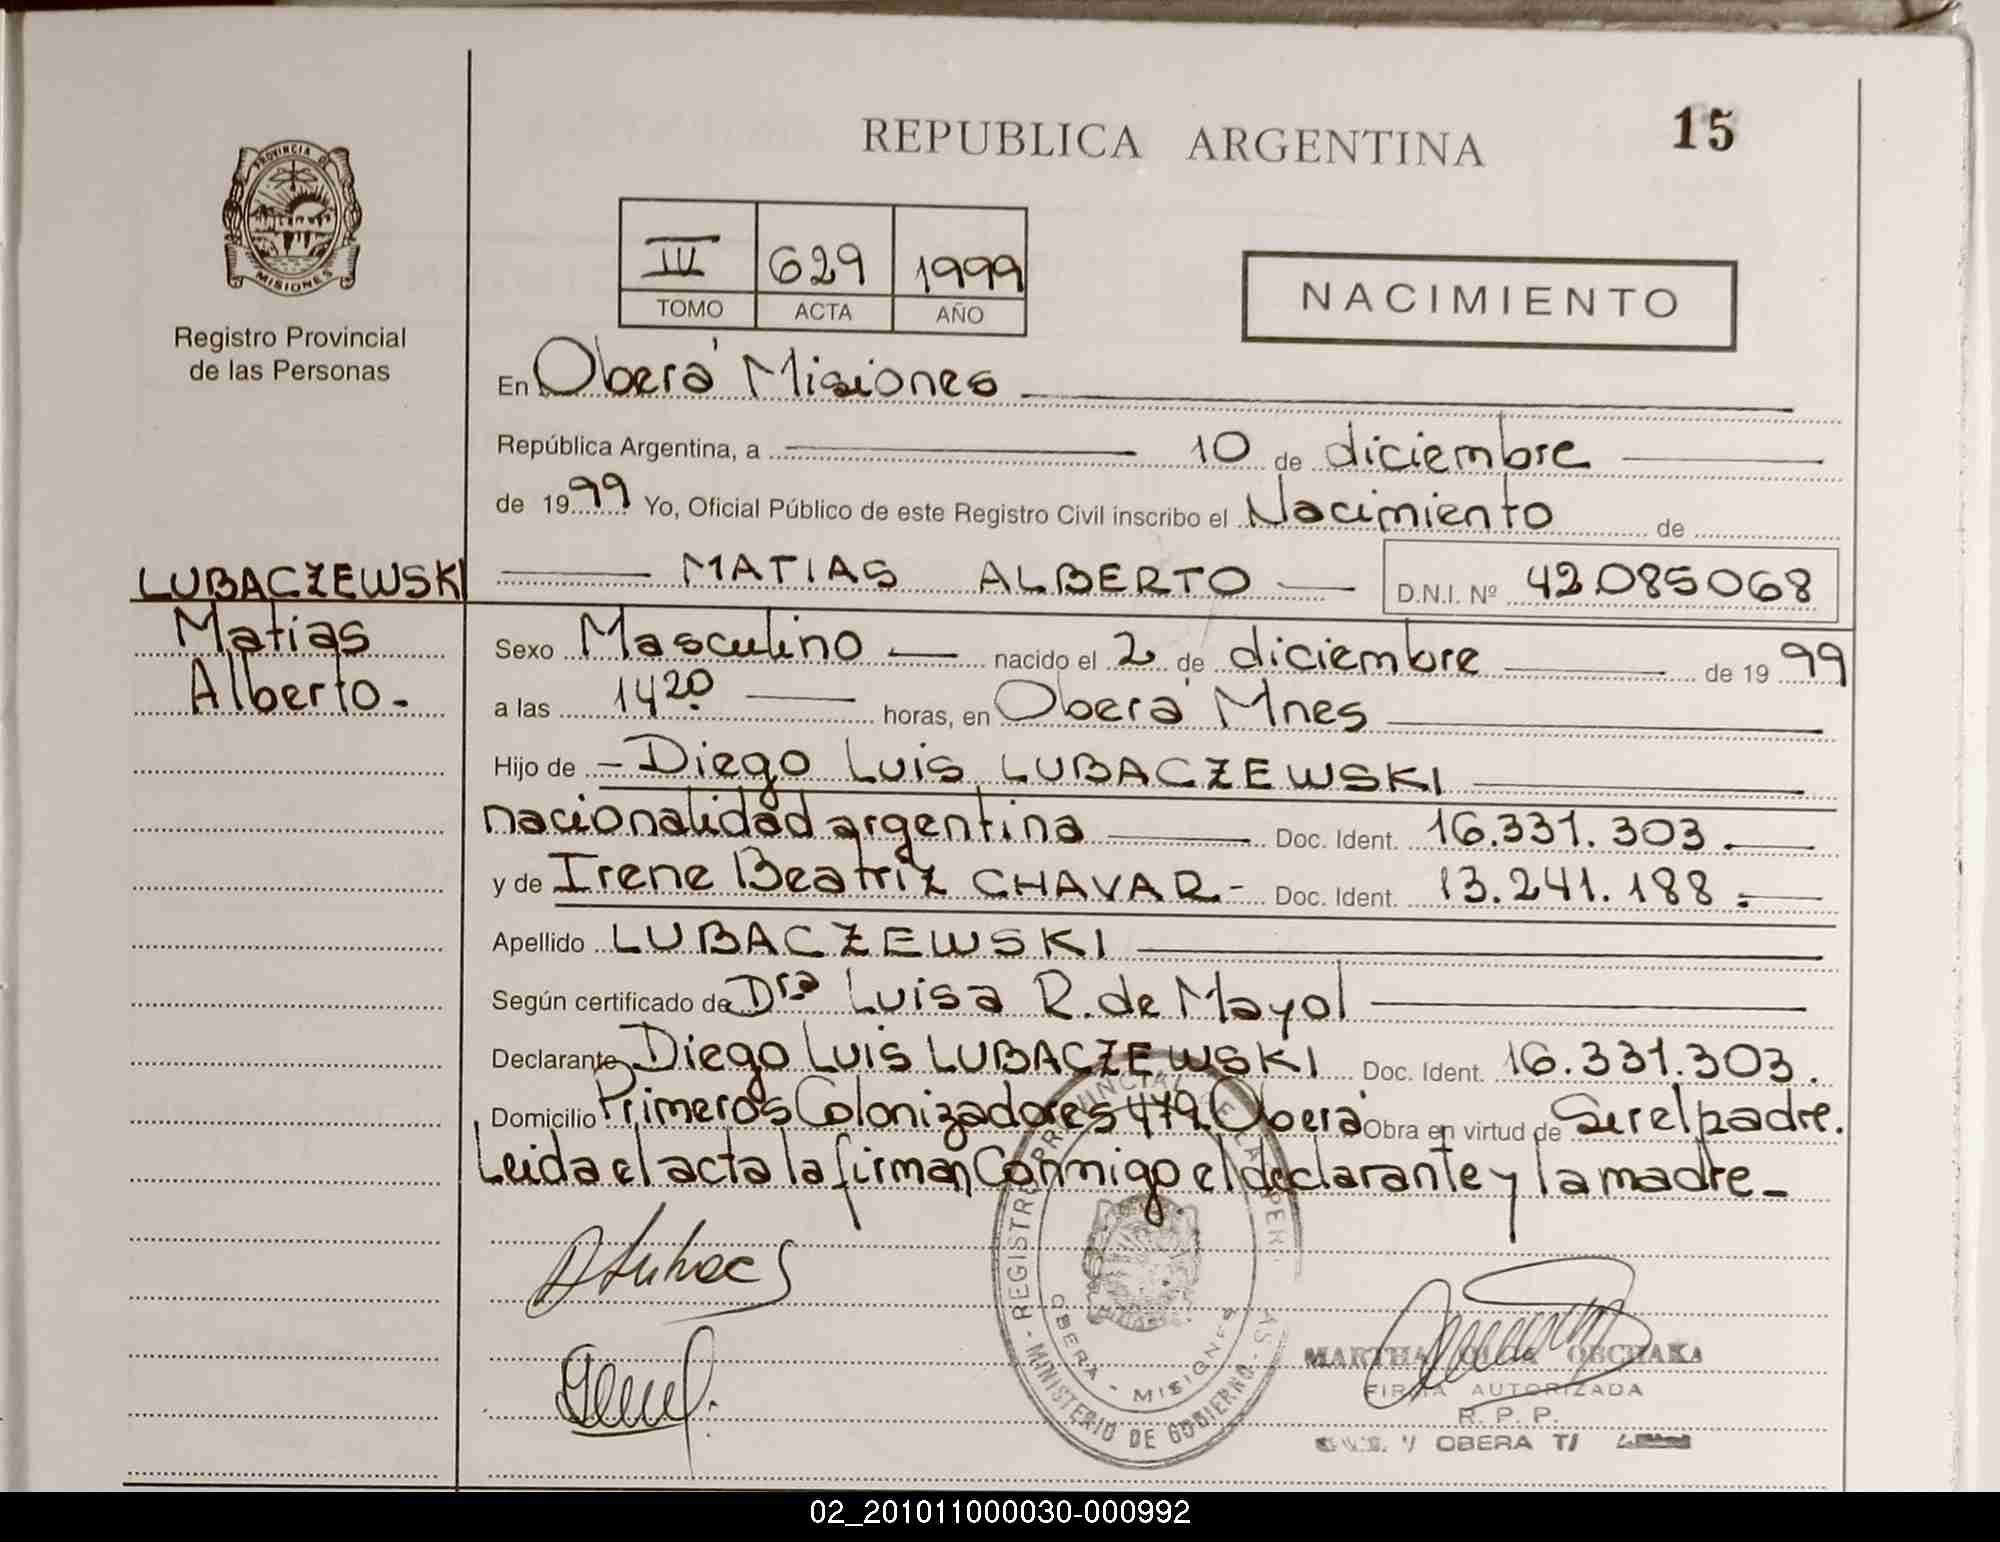 REPUBLICA ARGENTINA
15
PROVINCIA DE
MISIONES
Registro Provincial
de las Personas
IV 629 1999
TOMO ACTA AÑO
NACIMIENTO
En Oberá Misiones
República Argentina, a 10 de diciembre
de 1999 Yo, Oficial Público de este Registro Civil inscribo el Nacimiento de
LUBACZEWSKI
Matias
Alberto.-
MATIAS ALBERTO D.N.I. Nº 42.085068
Sexo Masculino nacido el 2 de diciembre de 1999
a las 14 20 horas, en Oberá Mnes
Hijo de - Diego Luis LUBACZEWSKI
nacionalidad argentina Doc. Ident. 16.331.303.
y de Irene Beatriz CHAVAR- Doc. Ident. 13.241.188.-
Apellido LUBACZEWSKI
Según certificado de Dra Luisa R. de Mayol
Declarante Diego Luis LUBACZEWSKI Doc. Ident. 16.331.303.
Domicilio Primeros Colonizadores 479 Oberá Obra en virtud de Ser el padre.
Leida el acta la firman Conmigo el declarante y la madre -
REGISTRO PROVINCIAL DE LAS PERSONAS
OBERA - MISIONES
- MINISTERIO DE GOBIERNO -
MARTHA OLGA OBCHAKA
FIRMA AUTORIZADA
R. P. P.
OBERA
02_201011000030-000992